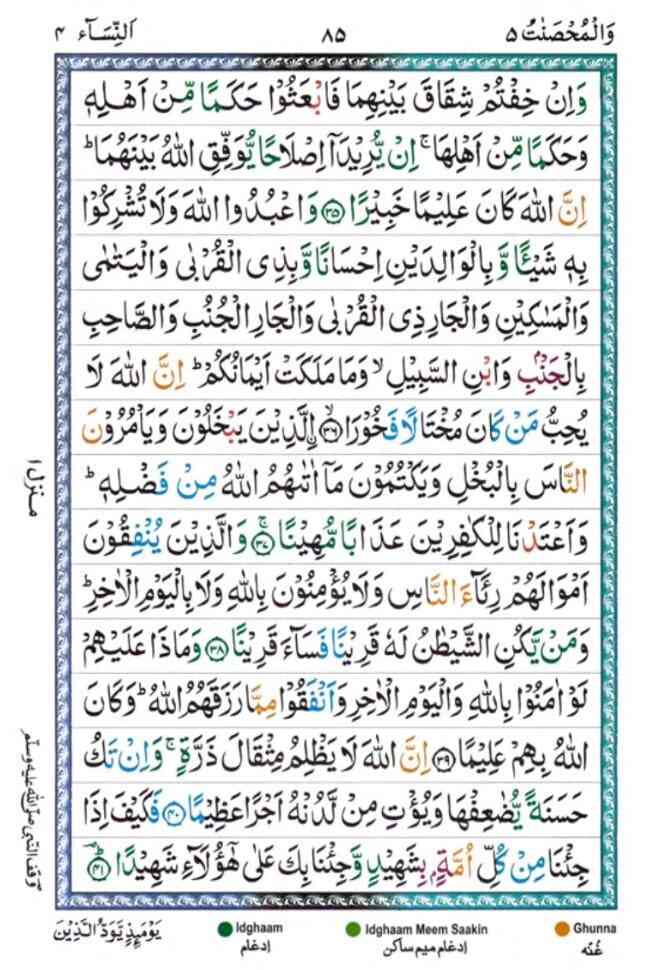 وَالْمُحْصَنٰتُ ۵ ۸۵ اَلنِّسَآء ۴
وَاِنْ خِفْتُمْ شِقَاقَ بَيْنِهِمَا فَابْعَثُوْا حَكَمًا مِّنْ اَهْلِهٖ
وَحَكَمًا مِّنْ اَهْلِهَا ۚ اِنْ يُّرِيْدَاۤ اِصْلَاحًا يُّوَفِّقِ اللّٰهُ بَيْنَهُمَا ؕ
اِنَّ اللّٰهَ كَانَ عَلِيْمًا خَبِيْرًا ۝۳۵ وَاعْبُدُوا اللّٰهَ وَلَا تُشْرِكُوْا
بِهٖ شَيْـًٔا وَّ بِالْوَالِدَيْنِ اِحْسَانًا وَّبِذِى الْقُرْبٰى وَالْيَتٰمٰى
وَالْمَسٰكِيْنِ وَالْجَارِ ذِى الْقُرْبٰى وَالْجَارِ الْجُنُبِ وَالصَّاحِبِ
بِالْجَنْۢبِ وَابْنِ السَّبِيْلِ ۙ وَمَا مَلَكَتْ اَيْمَانُكُمْ ؕ اِنَّ اللّٰهَ لَا
يُحِبُّ مَنْ كَانَ مُخْتَالًا فَخُوْرًا ۙ۝۳۶ اۨلَّذِيْنَ يَبْخَلُوْنَ وَيَاْمُرُوْنَ
النَّاسَ بِالْبُخْلِ وَيَكْتُمُوْنَ مَاۤ اٰتٰٮهُمُ اللّٰهُ مِنْ فَضْلِهٖ ؕ
وَاَعْتَدْنَا لِلْكٰفِرِيْنَ عَذَابًا مُّهِيْنًا ۚ۝۳۷ وَالَّذِيْنَ يُنْفِقُوْنَ
اَمْوَالَهُمْ رِئَآءَ النَّاسِ وَلَا يُؤْمِنُوْنَ بِاللّٰهِ وَلَا بِالْيَوْمِ الْاٰخِرِ ؕ
وَمَنْ يَّكُنِ الشَّيْطٰنُ لَهٗ قَرِيْنًا فَسَآءَ قَرِيْنًا ۝۳۸ وَمَاذَا عَلَيْهِمْ
لَوْ اٰمَنُوْا بِاللّٰهِ وَالْيَوْمِ الْاٰخِرِ وَاَنْفَقُوْا مِمَّا رَزَقَهُمُ اللّٰهُ ؕ وَكَانَ
اللّٰهُ بِهِمْ عَلِيْمًا ۝۳۹ اِنَّ اللّٰهَ لَا يَظْلِمُ مِثْقَالَ ذَرَّةٍ ۚ وَاِنْ تَكُ
حَسَنَةً يُّضٰعِفْهَا وَيُؤْتِ مِنْ لَّدُنْهُ اَجْرًا عَظِيْمًا ۝۴۰ فَكَيْفَ اِذَا
جِئْنَا مِنْ كُلِّ اُمَّةٍۭ بِشَهِيْدٍ وَّجِئْنَا بِكَ عَلٰى هٰٓؤُلَآءِ شَهِيْدًا ؕ۝۴۱
منزل ۱
وقف النبی صلی اللہ علیہ وسلم
يَوْمَئِذٍ يَّوَدُّ الَّذِيْنَ
Idghaam
إدغام
Idghaam Meem Saakin
إدغام ميم ساكن
Ghunna
غُنّه